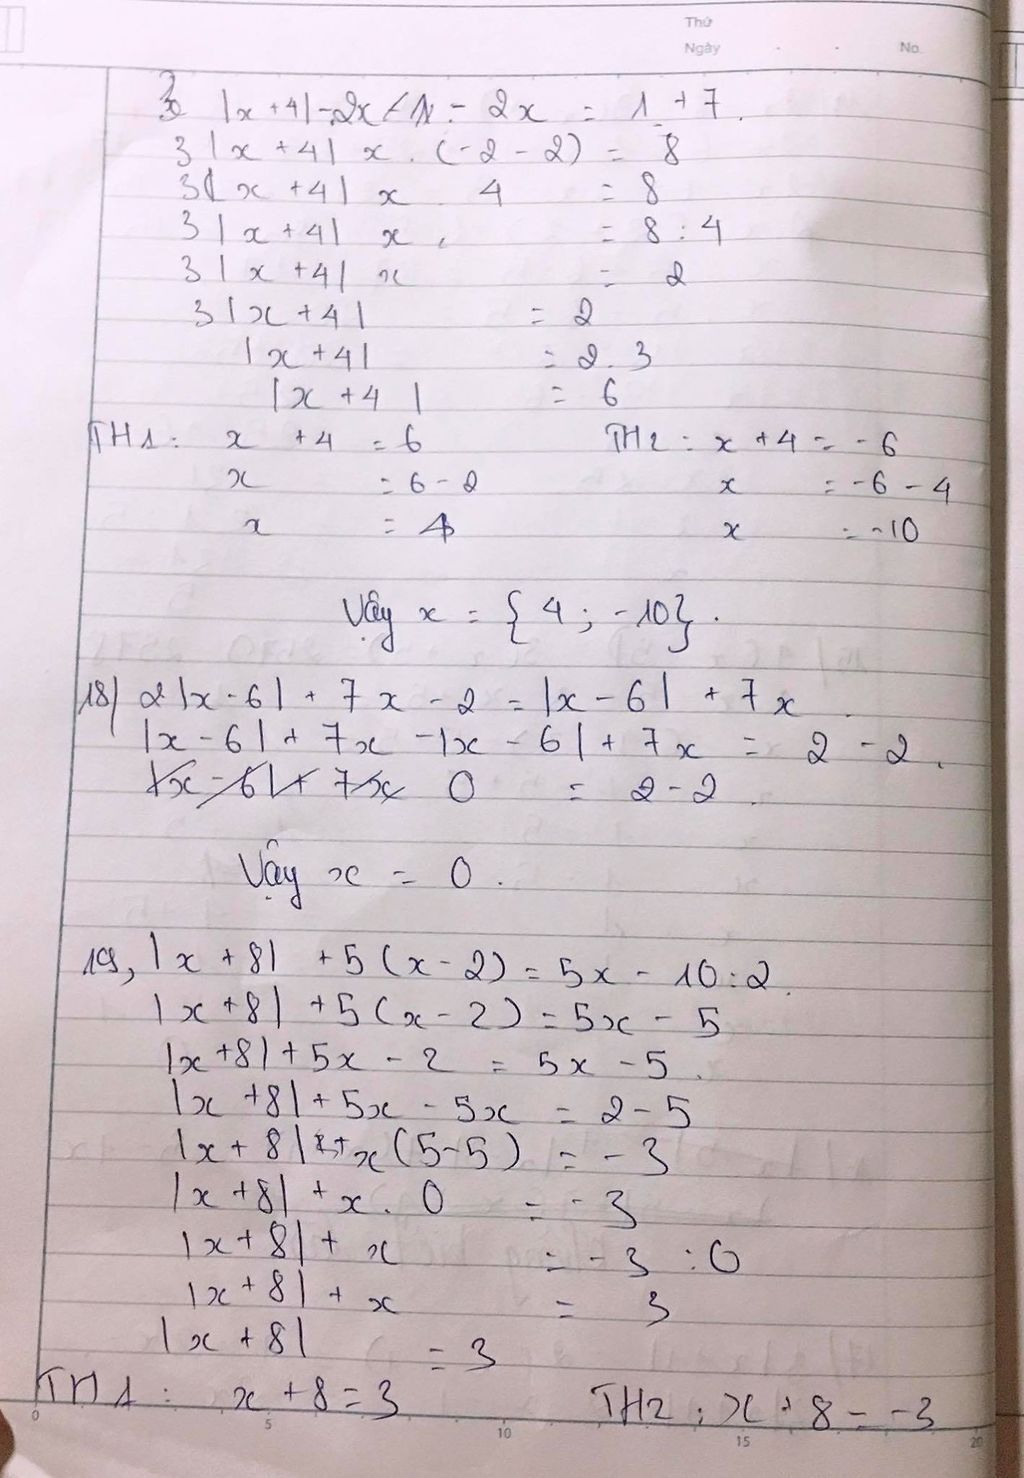 Thứ
Ngày . . No.
3 |x+4| - 2x - 2x = 1 + 7.
3 |x + 4| x . (-2 - 2) = 8
3 | x + 4| x 4 = 8
3 | x + 4| x . = 8 : 4
3 | x + 4| x = 2
3 |x + 4| = 2
|x + 4| = 2 . 3
|x + 4 | = 6
TH1: x + 4 = 6 TH2: x + 4 = -6
x = 6 - 2 x = -6 - 4
x = 4 x = -10
Vậy x = { 4 ; -10}.
18) 2 |x - 6| + 7 x - 2 = |x - 6| + 7 x .
|x - 6| + 7x - |x - 6| + 7x = 2 - 2 .
|x - 6| + 7x 0 = 2 - 2 .
Vậy x = 0 .
19, |x + 8| + 5 (x - 2) = 5x - 10 : 2.
|x + 8| + 5 (x - 2) = 5x - 5
|x + 8| + 5x - 2 = 5x - 5 .
|x + 8| + 5x - 5x = 2 - 5
|x + 8| + x (5 - 5) = - 3
|x + 8| + x . 0 = - 3
|x + 8| + x = - 3 : 0
|x + 8| + x = 3
|x + 8| = 3
TH1 : x + 8 = 3 TH2 : x + 8 = -3
0 5 10 15 20